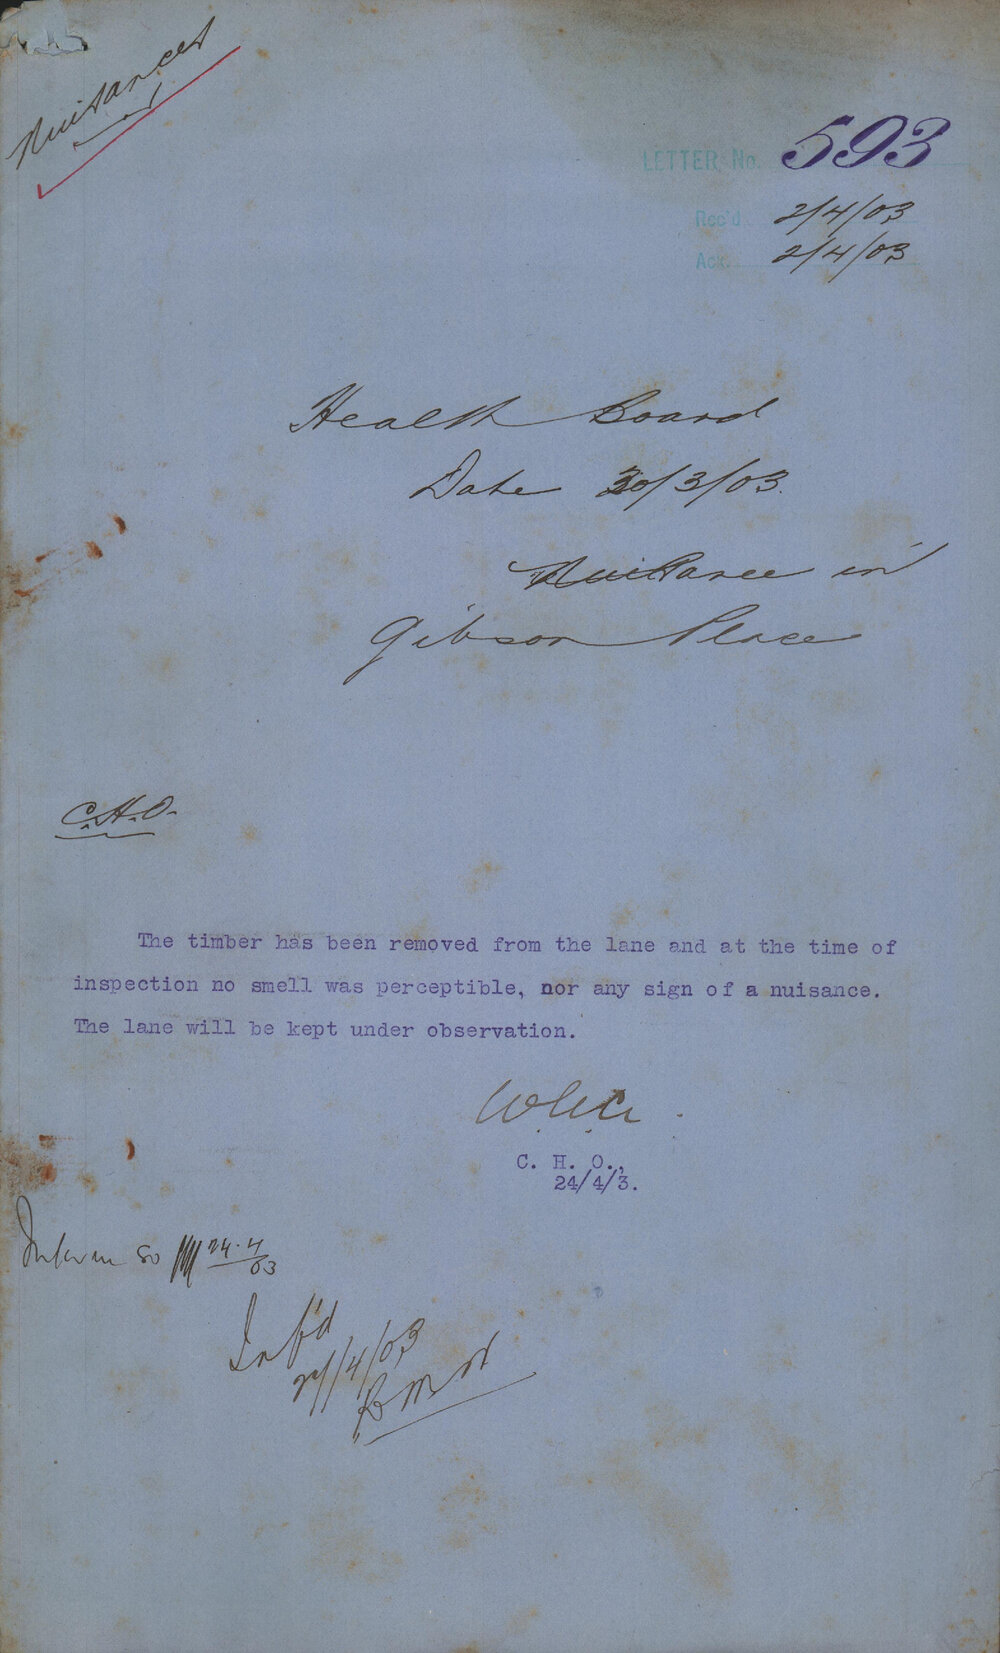 Nuisances
LETTER No. 593
Rec'd 2/4/03
Ack. 2/4/03
Health Board
Date 30/3/03.
Nuisance in
Gibson Place
C.H.O.
The timber has been removed from the lane and at the time of
inspection no smell was perceptible, nor any sign of a nuisance.
The lane will be kept under observation.
C. H. O.,
24/4/3.
Inform so 24.4/03
Inf'd
27/4/03